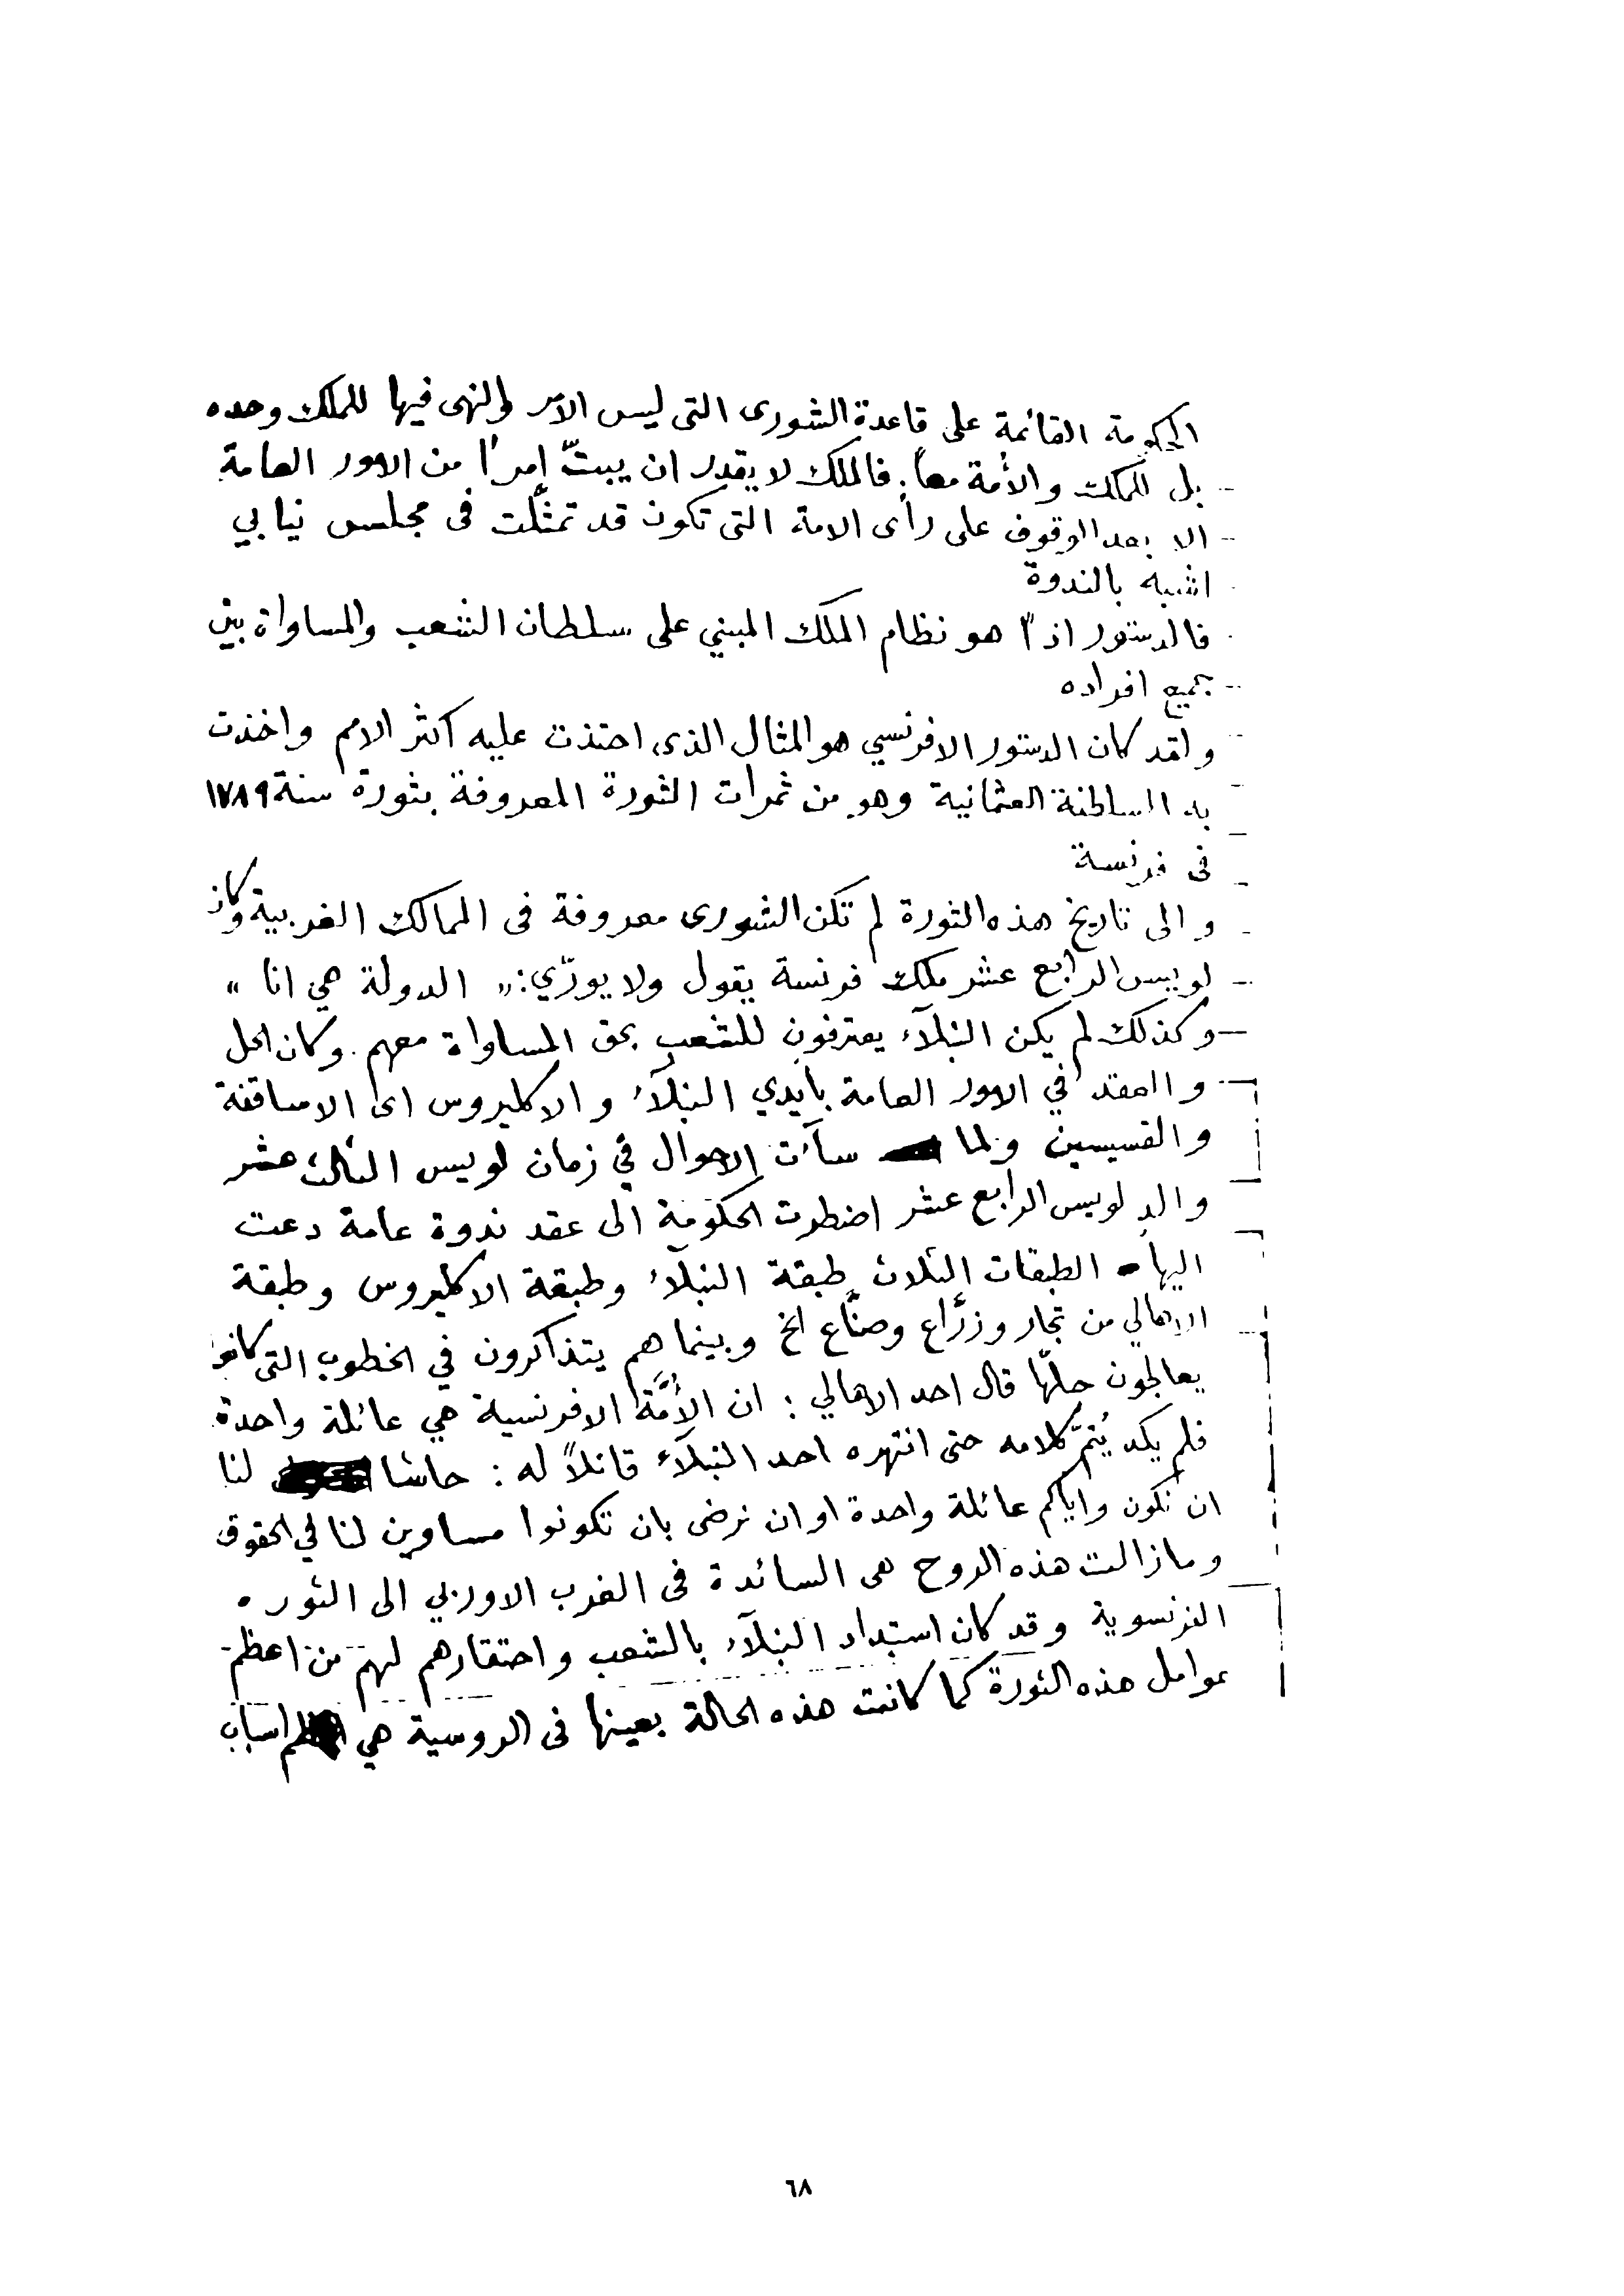 الحكومة القائمة على قاعدة الشورى التى ليس الامر والنهى فيها للملك وحده
بل للملك والأمة معاً. فالملك لا يقدر ان يبتّ امراً من الامور العامة
الا بعد الوقوف على رأى الامة التى تكون قد تمثّلت فى مجلس نيابي
اشبه بالندوة
فالدستور اذاً هو نظام الملك المبني على سلطان الشعب والمساواة بين
جميع افراده
ولقد كان الدستور الافرنسي هو المثال الذى احتذت عليه اكثر الامم واخذت
به السلطنة العثمانية وهو من ثمرات الثورة المعروفة بثورة سنة ١٧٨٩
فى فرنسة
والى تاريخ هذه الثورة لم تكن الشورى معروفة فى الممالك الغربية وكان
لويس الرابع عشر ملك فرنسة يقول ولا يورّي: « الدولة هي انا »
وكذلك لم يكن النبلآء يعترفون للشعب بحق المساواة معهم. وكان الحل
والعقد في الامور العامة بأيدي النبلآء والاكليروس اى الاساقفة
والقسيسين ولما سآءت الاحوال في زمان لويس الثالث عشر
والد لويس الرابع عشر اضطرت الحكومة الى عقد ندوة عامة دعت
اليها الطبقات الثلاث طبقة النبلآء وطبقة الاكليروس وطبقة
الاهالي من تجار وزرّاع وصنّاع الخ وبينما هم يتذاكرون في الخطوب التى كانوا
يعالجون حلّها قال احد الاهالي : ان الأُمَّة الافرنسية هي عائلة واحدة
فلم يكد يُتمّ كلامه حتى انتهره احد النبلآء قائلاً له : حاشا لنا
ان نكون واياكم عائلة واحدة او ان نرضى بان تكونوا مساوين لنا في الحقوق
وما زالت هذه الروح هى السائدة فى الغرب الاوربي الى الثوره
الفرنسوية وقد كان استبداد النبلآء بالشعب واحتقارهم لهم من اعظم
عوامل هذه الثورة كما كانت هذه الحالة بعينها فى الروسية هي اسباب
٦٨